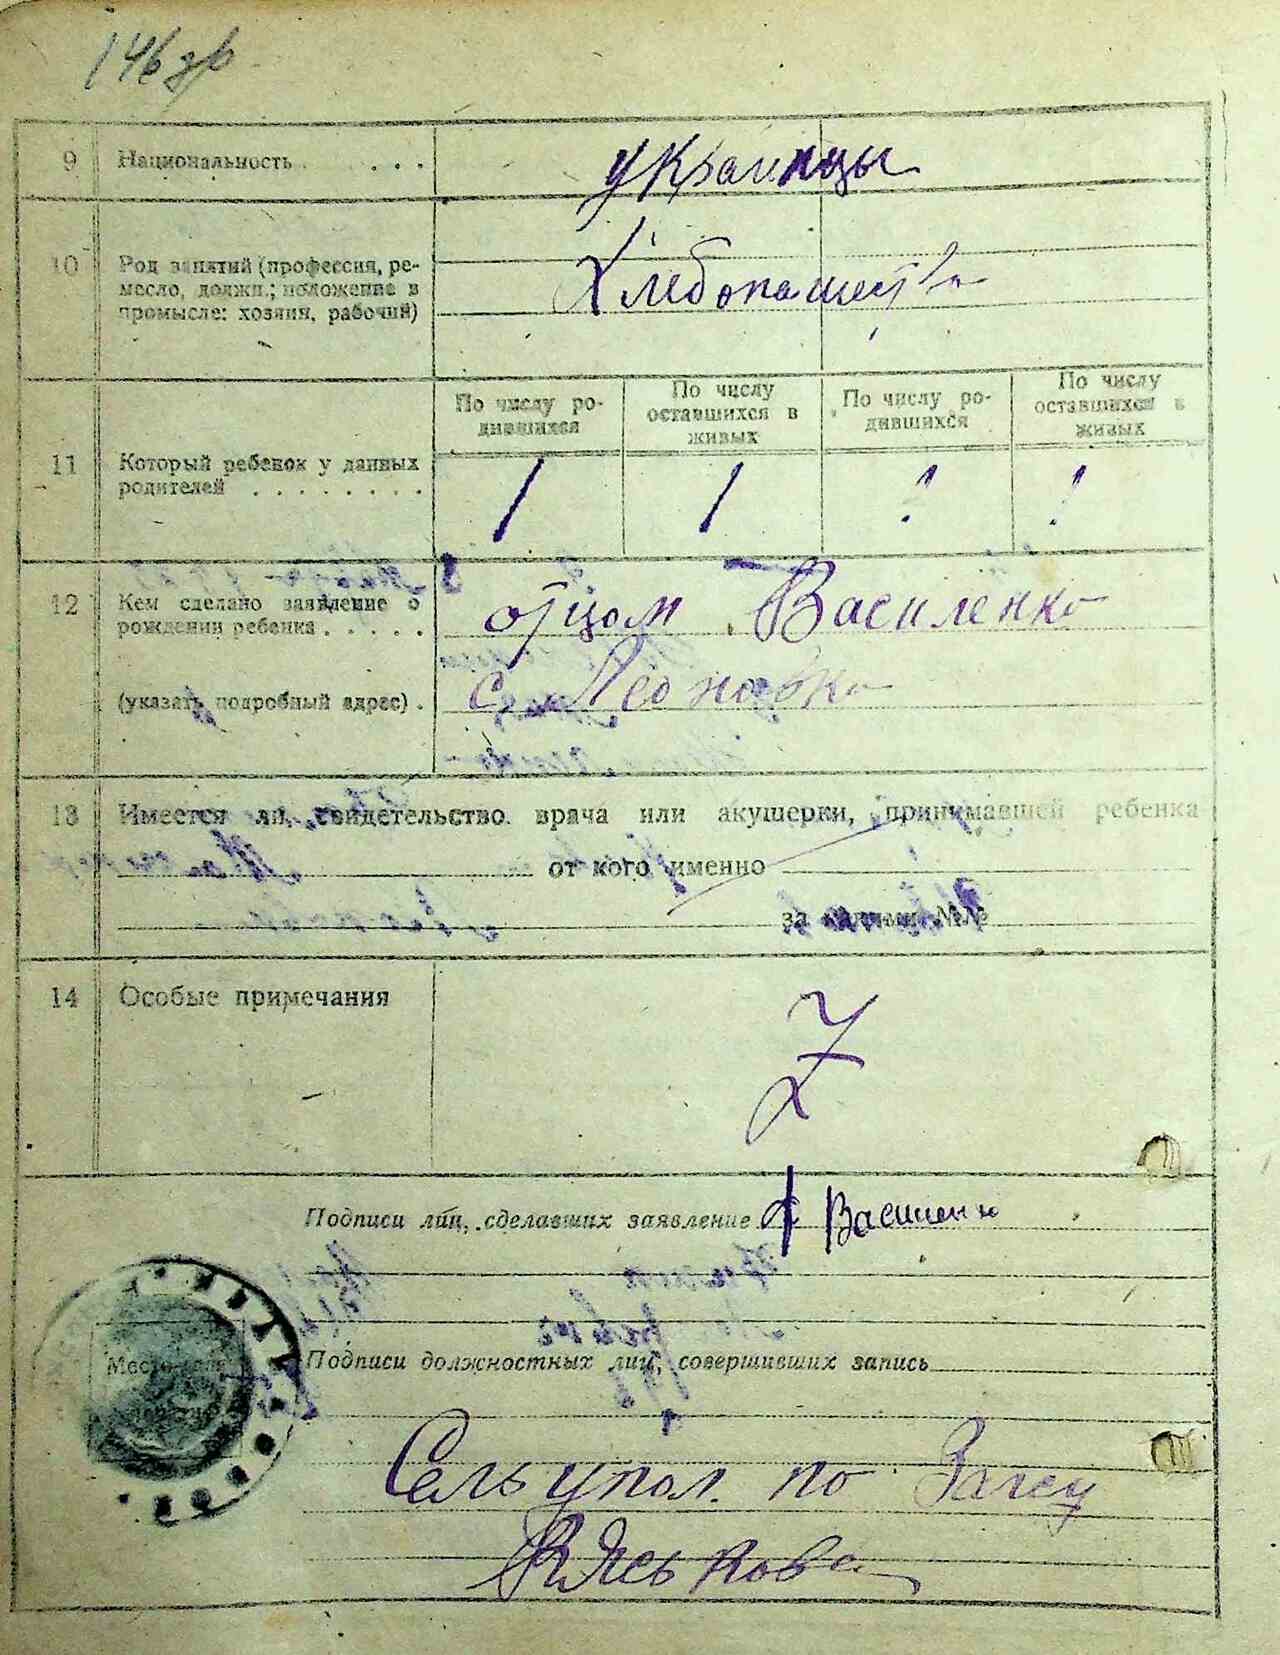 146 зв
9 Национальность . . . . украинцы
10 Род занятий (профессия, ре-
месло, должн.; положение в
промысле: хозяин, рабочий)
Хлебопашество
По числу ро-
дившихся
По числу
оставшихся в
живых
По числу ро-
дившихся
По числу
оставшихся в
живых
11 Который ребенок у данных
родителей . . . . . . . .
1 1 1 1
12 Кем сделано заявление о
рождении ребенка . . . . .
отцом Василенко
(указать подробный адрес) . с. Леднов
13 Имеется ли свидетельство врача или акушерки, принимавшей ребенка
от кого именно
за какими №№
14 Особые примечания
Z
Подписи лиц, сделавших заявление Василенко
Подписи должностных лиц, совершивших запись
Место для
печати
Сельупол. по Загсу
Яськова